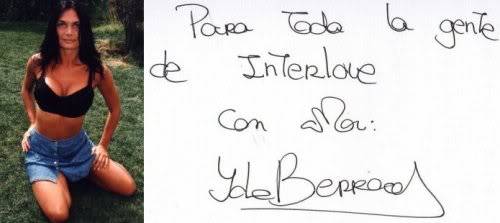 Para toda la gente
de Interlove
con amor:
Yola Berrocal